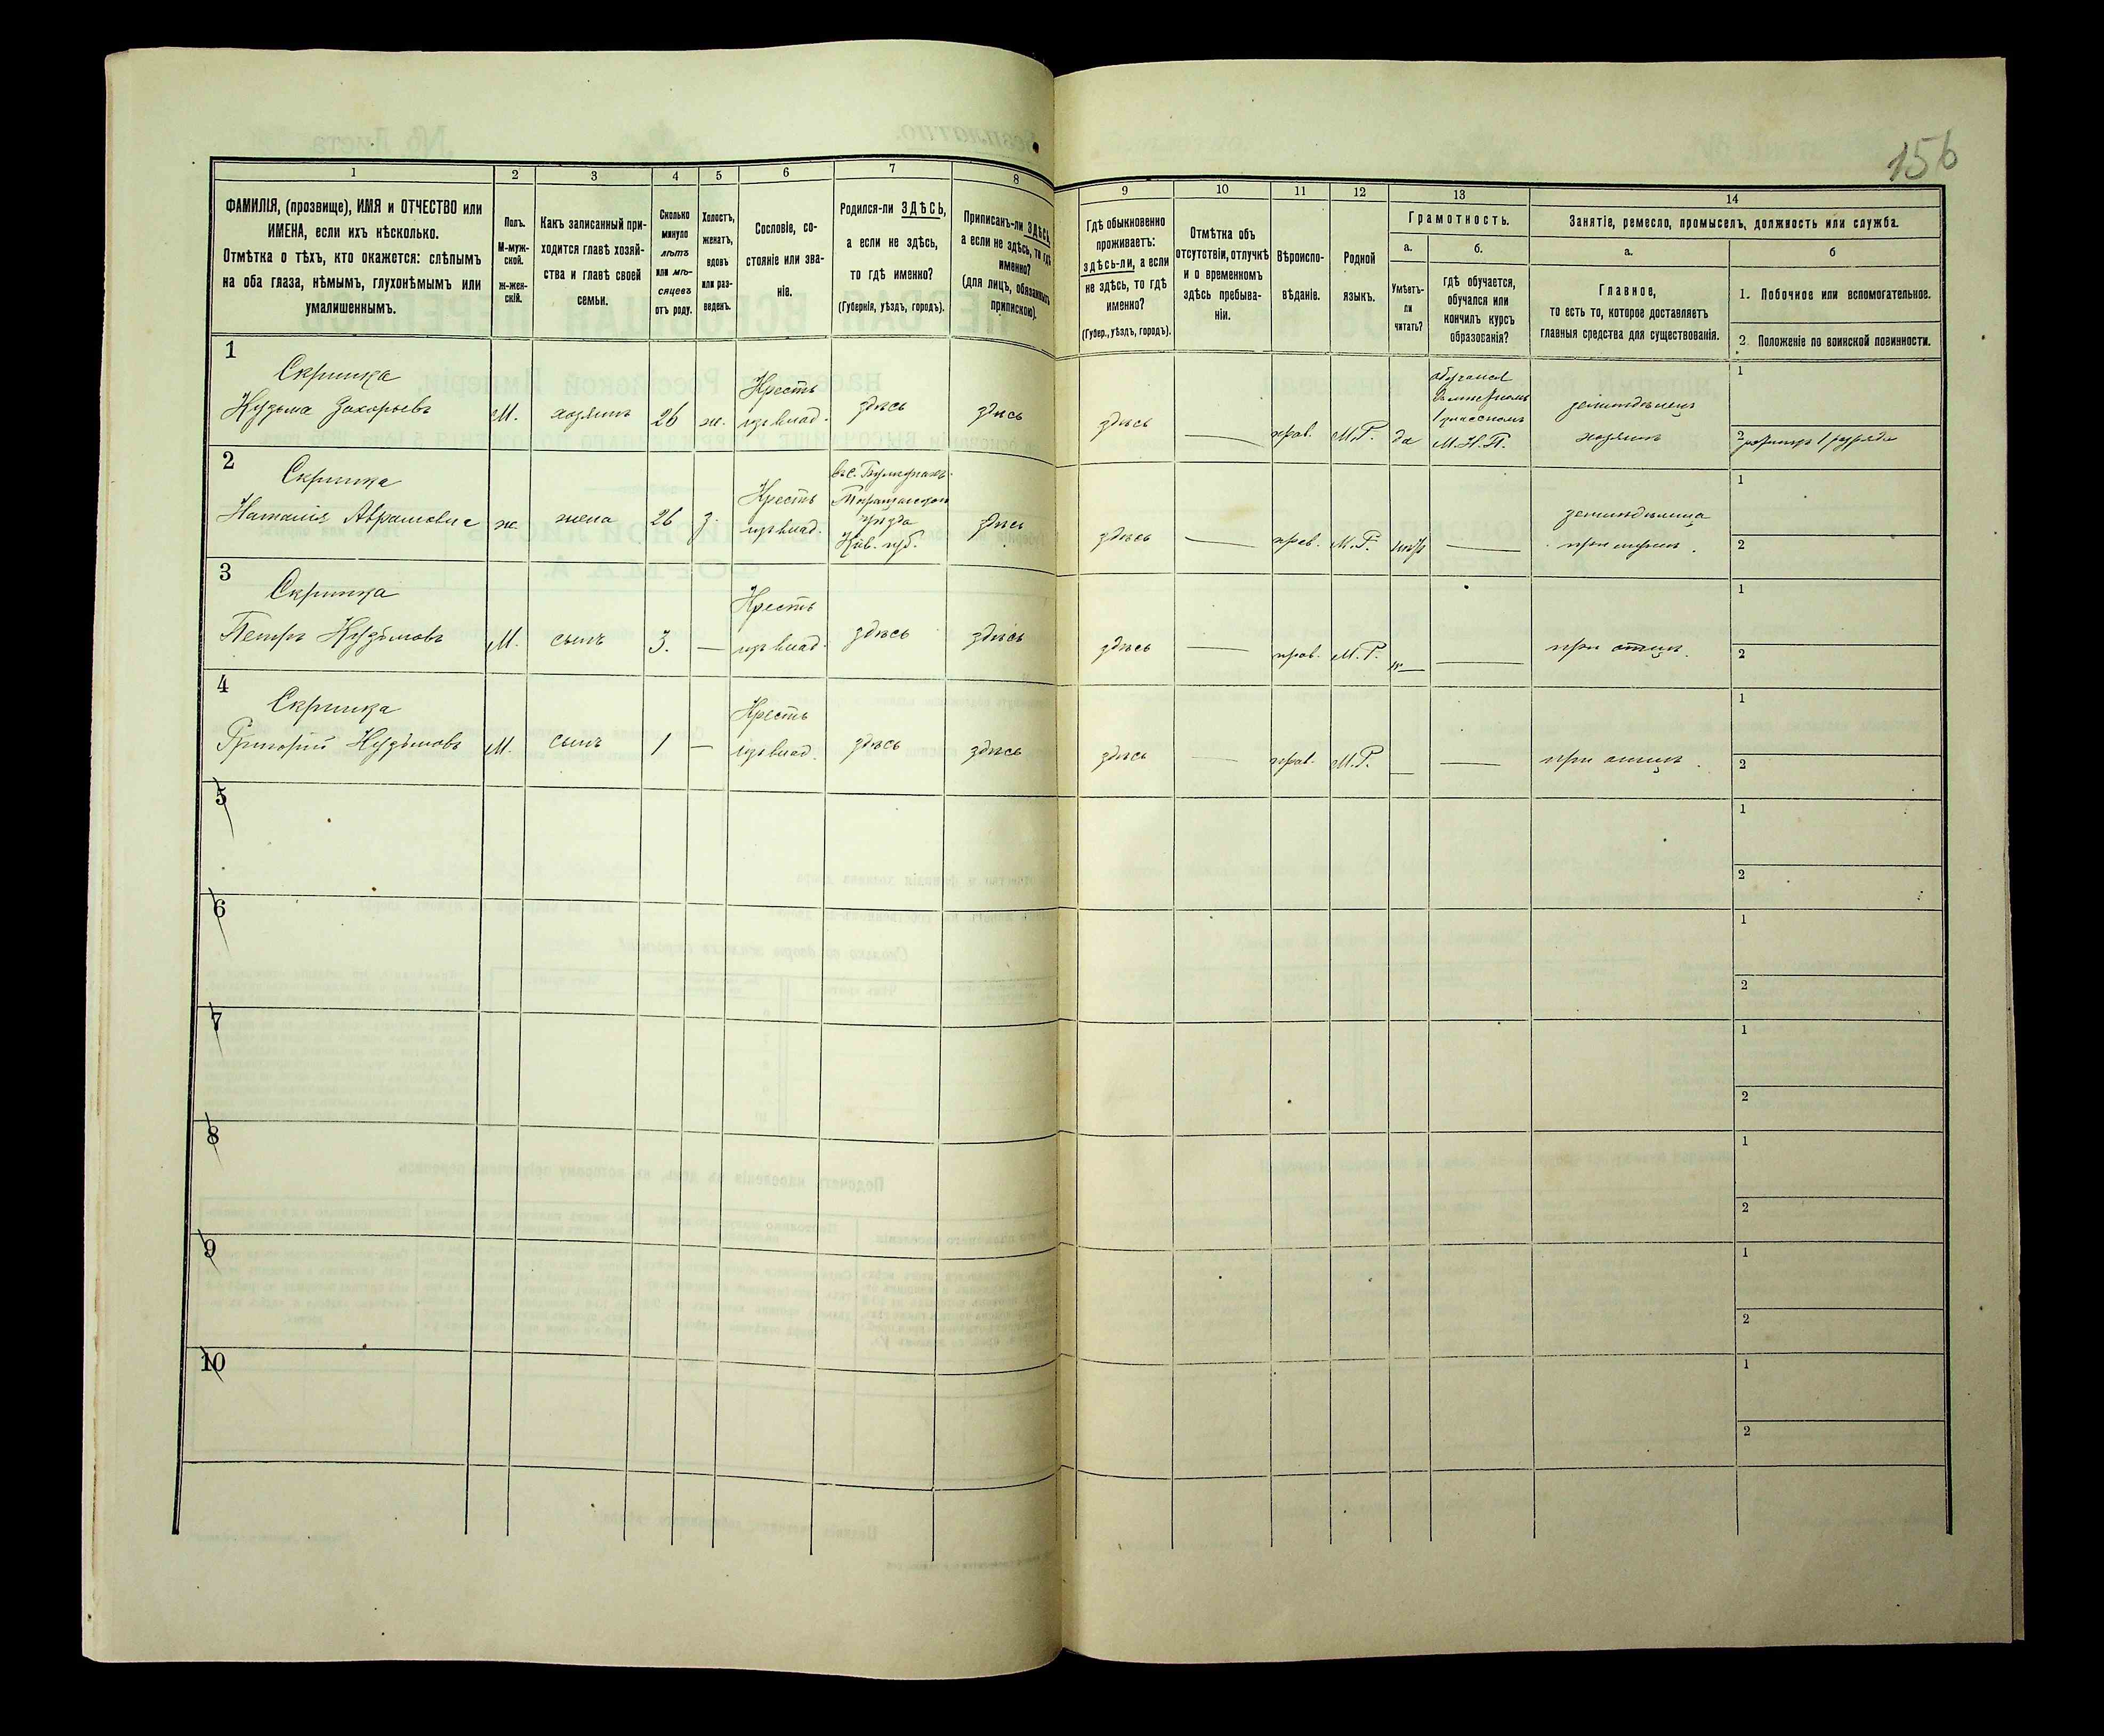 156
1
2
3
4
5
6
7
8
ФАМИЛІЯ, (прозвище), ИМЯ и ОТЧЕСТВО или
ИМЕНА, если ихъ нѣсколько.
Отмѣтка о тѣхъ, кто окажется: слѣпымъ
на оба глаза, нѣмымъ, глухонѣмымъ или
умалишеннымъ.
Полъ.
М-муж-
ской.
ж-жен-
скій.
Какъ записанный при-
ходится главѣ хозяй-
ства и главѣ своей
семьи.
Сколько
минуло
лѣтъ
или мѣ-
сяцевъ
отъ роду.
Холостъ,
женатъ,
вдовъ
или раз-
веденъ.
Сословіе, со-
стояніе или зва-
ніе.
Родился-ли ЗДѢСЬ,
а если не здѣсь,
то гдѣ именно?
(Губернія, уѣздъ, городъ).
Приписанъ-ли ЗДѢСЬ,
а если не здѣсь, то гдѣ
именно?
(для лицъ, обязанныхъ
припискою).
9
10
11
12
13
14
Гдѣ обыкновенно
проживаетъ:
здѣсь-ли, а если
не здѣсь, то гдѣ
именно?
(Губер., уѣздъ, городъ).
Отмѣтка объ
отсутствіи, отлучкѣ
и о временномъ
здѣсь пребыва-
ніи.
Вѣроиспо-
вѣданіе.
Родной
языкъ.
Грамотность.
а.
Умѣетъ-
ли
читать?
б.
гдѣ обучается,
обучался или
кончилъ курсъ
образованія?
Занятіе, ремесло, промыселъ, должность или служба.
а.
Главное,
то есть то, которое доставляетъ
главныя средства для существованія.
б
1. Побочное или вспомогательное.
2. Положеніе по воинской повинности.
1
Скрипка
Кузьма Захарьевъ
М.
хозяинъ
26
ж.
Крестъ
изъ влад.
здѣсь
здѣсь
здѣсь
—
прав.
М.Р.
да
обучался
1 классномъ
М.Н.П.
земледѣлецъ
хозяинъ
1
2 ратникъ 1 разряда
2
Скрипка
Наталія Аврамовна
ж
жена
26
з.
Крестъ
изъ влад.
Таращанскаго
уѣзда
Кіев. губ.
здѣсь
здѣсь
—
прав.
М.Р.
нѣтъ
—
земледѣлица
при мужѣ.
1
2
3
Скрипка
Петръ Кузьмовъ
М.
сынъ
3.
—
Крестъ
изъ влад.
здѣсь
здѣсь
здѣсь
—
прав.
М.Р.
—
при отцѣ.
1
2
4
Скрипка
Григорій Кузьмовъ
М.
сынъ
1
—
Крестъ
изъ влад.
здѣсь
здѣсь
здѣсь
—
прав.
М.Р.
—
—
при отцѣ.
1
2
5
1
2
6
1
2
7
1
2
8
1
2
9
1
2
10
1
2